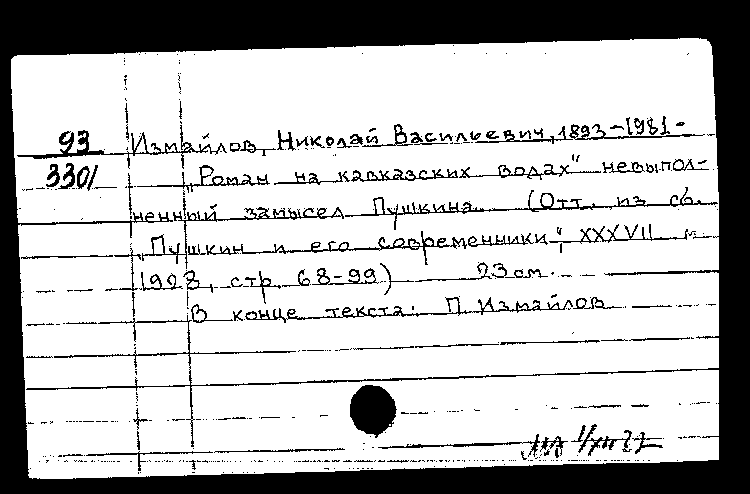 93 Измайлов, Николай Васильевич, 1893-1981-
3301 „Роман на кавказских водах" невыпол-
ненный замысел Пушкина. (Отт. из сб.
„Пушкин и его современники", XXXVII
1928, стр. 68-99) 23 см.
В конце текста: Измайлов